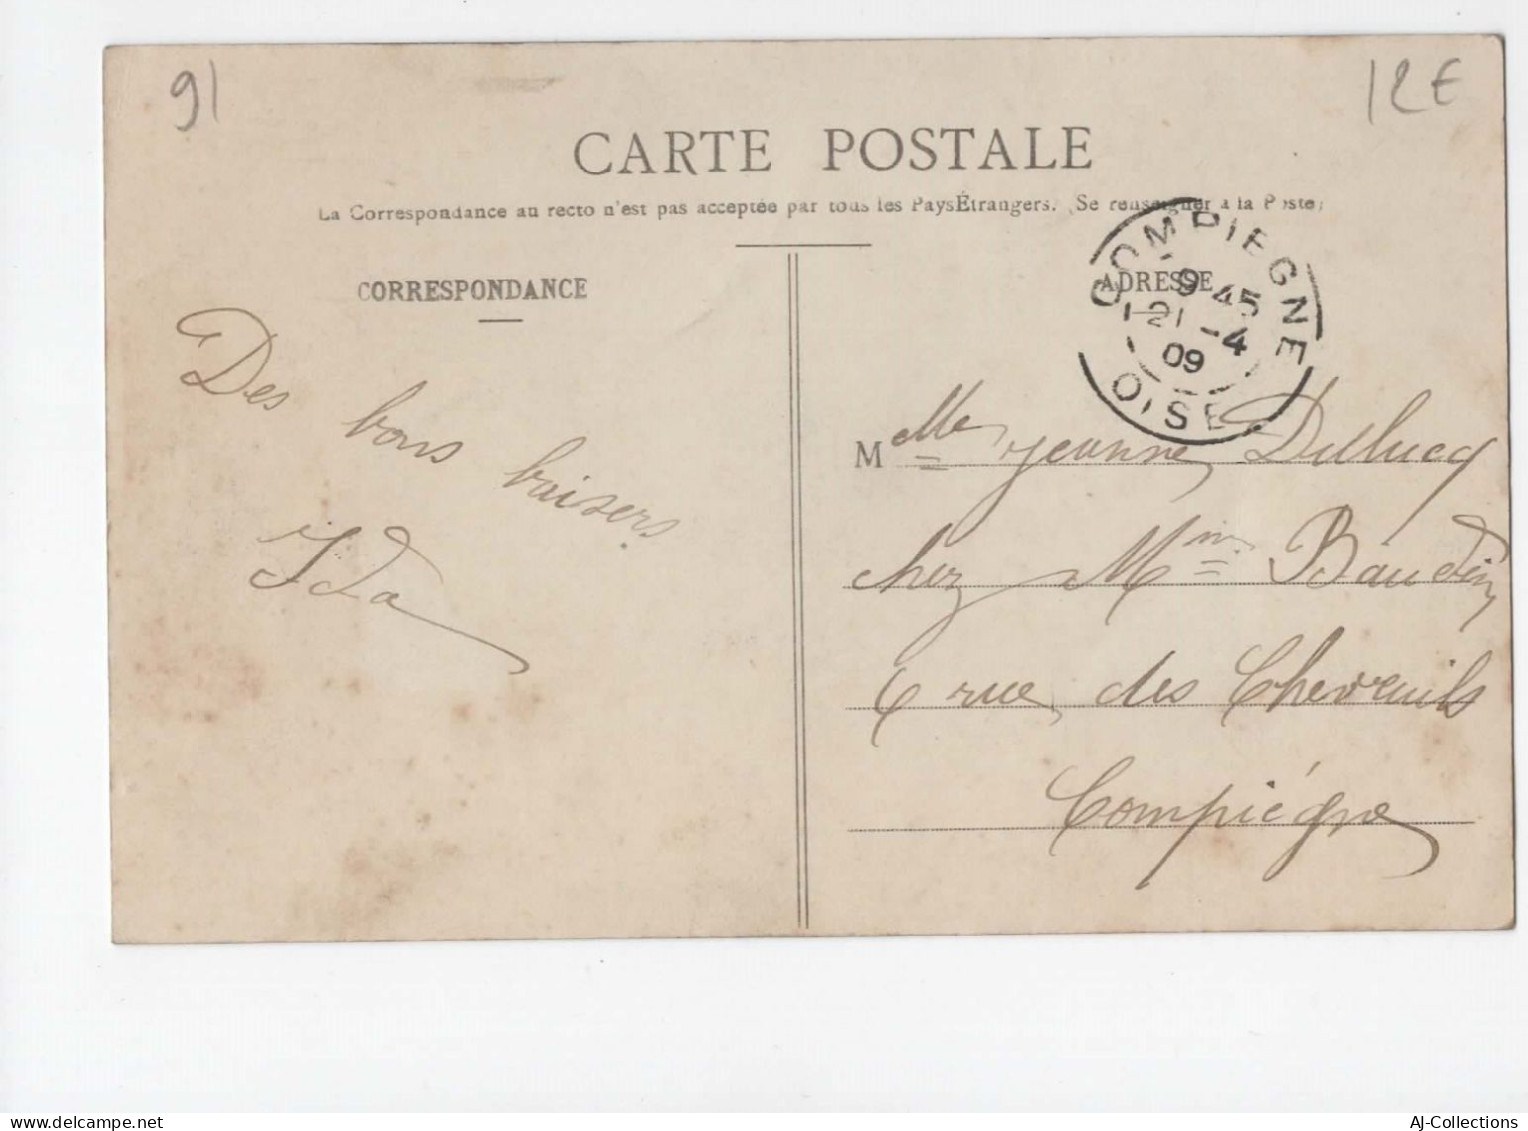 91
12€
CARTE POSTALE
La Correspondance au recto n'est pas acceptée par tous les Pays Étrangers. (Se renseigner à la Poste)
CORRESPONDANCE
ADRESSE
COMPIEGNE
9 45
21 -4
09
OISE
Des bons baisers
Ida
Melle Jeanne
chez Mme Baudin
6 rue des Chevreuils
Compiégne
AJ-Collections